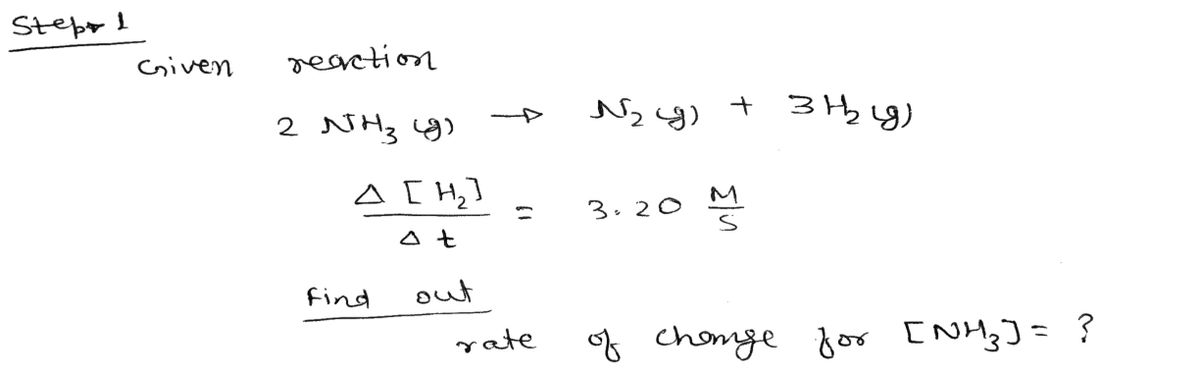 Step 1
Given reaction
2 NH₃ (g) → N₂ (g) + 3 H₂ (g)
Δ [H₂] / Δ t = 3.20 M/S
Find out
rate of change for [NH₃] = ?